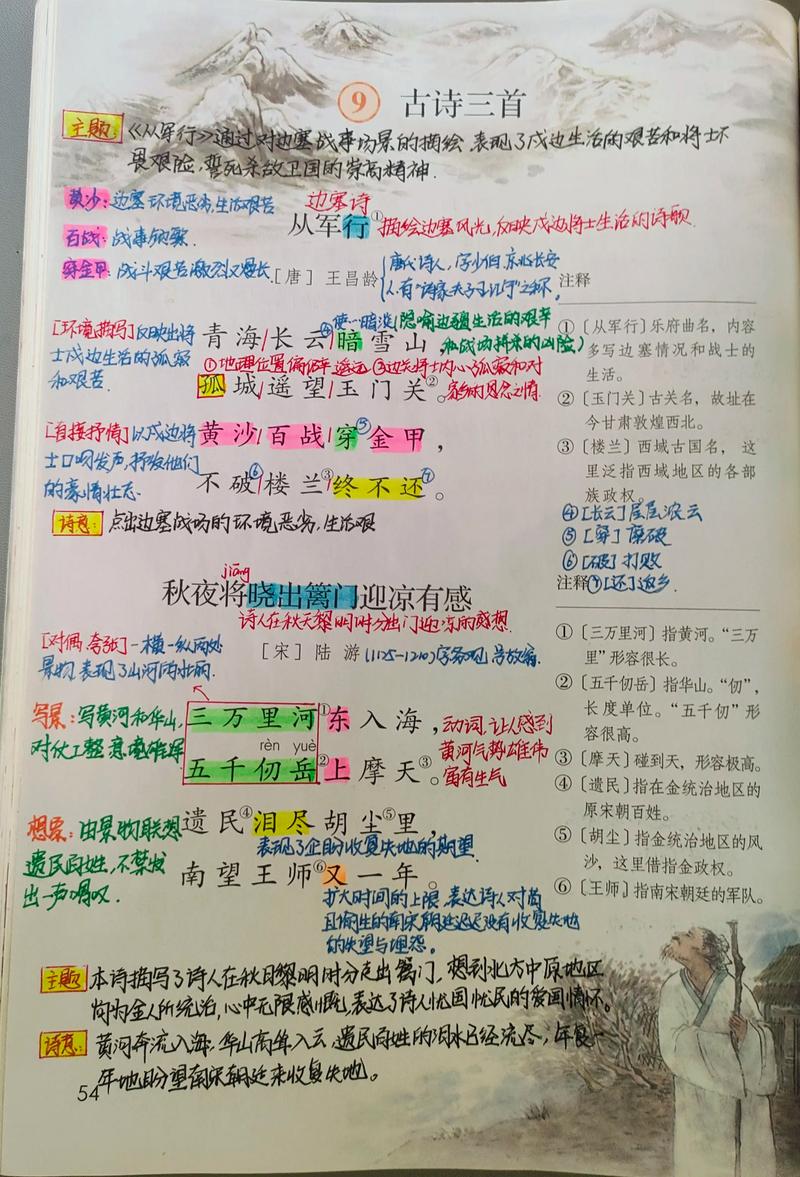 9 古诗三首
主题 《从军行》通过对边塞战事场景的描绘,表现了戍边生活的艰苦和将士不
畏艰险,誓死杀敌卫国的崇高精神.
黄沙:边塞环境恶劣,生活艰苦
百战:战事频繁.
穿金甲:战斗艰苦激烈又漫长.
边塞诗
从军行① 描绘边塞风光,反映戍边将士生活的诗歌.
[唐] 王昌龄
唐代诗人,字少伯,京兆长安
人.有“诗家夫子王江宁”之称.
[环境描写]反映出将
士戍边生活的孤寂
和艰苦.
④使…暗淡(隐喻边疆生活的艰辛
和战场将来的凶险)
青海/长云/暗雪山,
①地理位置偏僻遥远 ②边关将士内心孤寂和对
家乡的思念之情.
孤城遥望玉门关②。
[直接抒情]以戍边将
士口吻发声,抒发他们
的豪情壮志.
黄沙/百战/穿⑤金甲,
不破⑥/楼兰③/终不还⑦。
诗意: 点出边塞战场的环境恶劣,生活艰
注释
①〔从军行〕乐府曲名,内容
多写边塞情况和战士的
生活。
②〔玉门关〕古关名,故址在
今甘肃敦煌西北。
③〔楼兰〕西域古国名,这
里泛指西域地区的各部
族政权。
④[长云]层层浓云
⑤[穿]磨破
⑥[破]打败
⑦[还]返乡.
jiāng
秋夜将晓出篱门迎凉有感
诗人在秋天黎明时分出门迎凉的感想.
[宋] 陆 游(1125-1210)字务观,号放翁.
[对偶 夸张]一横一纵两处
景物,表现了山河的壮丽.
写景:写黄河和华山,
对仗工整,意境雄浑
三万里河①东入海,
rèn yuè
五千仞岳②上摩天③。
动词,让人感到
黄河气势雄伟
富有生气
想象:由景物联想
遗民百姓,不禁发
出一声喟叹.
遗民④泪尽胡尘⑤里,
表现了企盼收复失地的期望.
南望王师⑥又一年。
扩大时间的上限,表达诗人对苟
且偷生的南宋朝廷迟迟没有收复失地
的失望与埋怨。
注释
①〔三万里河〕指黄河。“三万
里”形容很长。
②〔五千仞岳〕指华山。“仞”,
长度单位。“五千仞”形
容很高。
③〔摩天〕碰到天,形容极高。
④〔遗民〕指在金统治地区的
原宋朝百姓。
⑤〔胡尘〕指金统治地区的风
沙,这里借指金政权。
⑥〔王师〕指南宋朝廷的军队。
主题 本诗描写了诗人在秋日黎明时分走出篱门,想到北方中原地区
仍为金人所统治,心中无限感慨,表达了诗人忧国忧民的爱国情怀.
诗意: 黄河奔流入海,华山高耸入云,遗民百姓的泪水已经流尽,年复一
年地盼望南宋朝廷来收复失地。
54